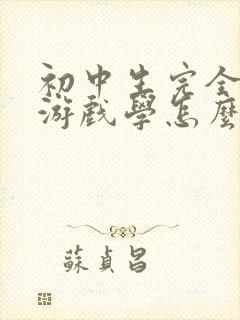 初中生完全
游戏學怎麼
蘇貞昌